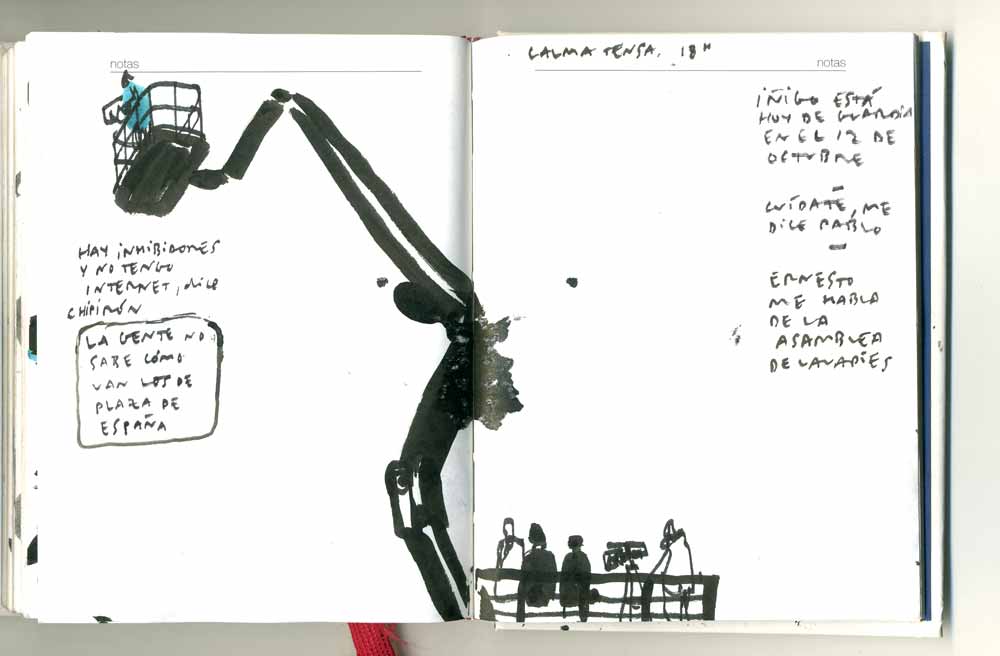 notas
HAY INHIBIDORES
Y NO TENGO
INTERNET, dice
CHIPIRÓN
LA GENTE NO
SABE CÓMO
VAN LOS DE
PLAZA DE
ESPAÑA
CALMA TENSA, 18H
notas
IÑIGO ESTÁ
HOY DE GUARDIA
EN EL 12 DE
OCTUBRE
CUÍDATE, ME
DICE PABLO
ERNESTO
ME HABLA
DE LA
ASAMBLEA
DE LAVAPIES